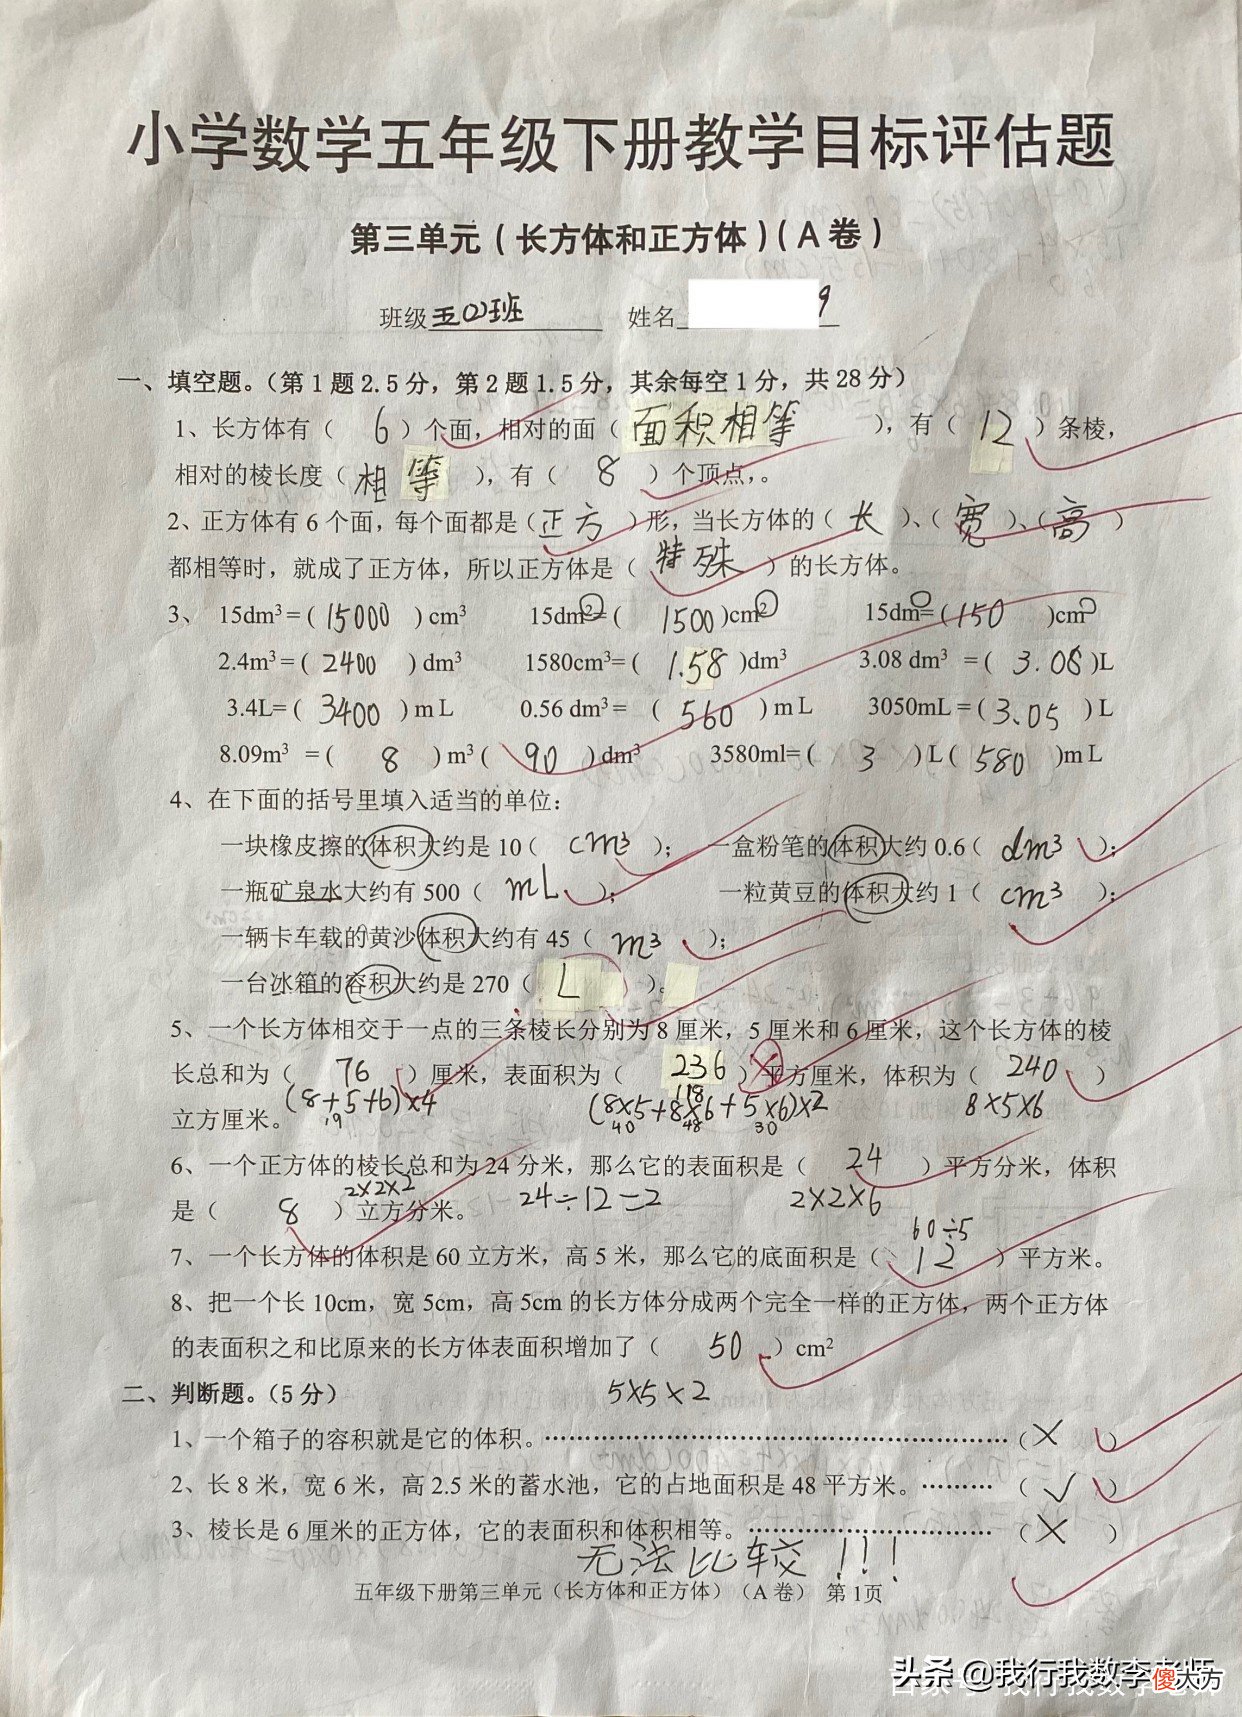 小学数学五年级下册教学目标评估题
第三单元（长方体和正方体）（A卷）
班级五(2)班 姓名 9
一、填空题。（第1题2.5分，第2题1.5分，其余每空1分，共28分）
1、长方体有（ 6 ）个面，相对的面（ 面积相等 ），有（ 12 ）条棱，
相对的棱长度（ 相等 ），有（ 8 ）个顶点，。
2、正方体有6个面，每个面都是（正方）形，当长方体的（ 长 ）、（ 宽 ）、（ 高 ）
都相等时，就成了正方体，所以正方体是（ 特殊 ）的长方体。
3、 15dm³=( 15000 ) cm³ 15dm²=( 1500 )cm² 15dm=( 150 )cm
2.4m³=( 2400 ) dm³ 1580cm³=( 1.58 )dm³ 3.08 dm³ =( 3.08 )L
3.4L=( 3400 ) mL 0.56 dm³= ( 560 ) mL 3050mL=( 3.05 ) L
8.09m³ =( 8 ) m³( 90 ) dm³ 3580ml=( 3 ) L( 580 )mL
4、在下面的括号里填入适当的单位：
一块橡皮擦的体积大约是10（ cm³ ）； 一盒粉笔的体积大约0.6（ dm³ ）；
一瓶矿泉水大约有500（ mL ）； 一粒黄豆的体积大约1（ cm³ ）；
一辆卡车载的黄沙体积大约有45（ m³ ）；
一台冰箱的容积大约是270（ L ）。
5、一个长方体相交于一点的三条棱长分别为8厘米，5厘米和6厘米，这个长方体的棱
长总和为（ 76 ）厘米，表面积为（ 236 ）平方厘米，体积为（ 240 ）
118
立方厘米。 (8+5+6)×4 (8×5+8×6+5×6)×2 8×5×6
19 40 48 30
6、一个正方体的棱长总和为24分米，那么它的表面积是（ 24 ）平方分米，体积
2×2×2
是（ 8 ）立方分米。 24÷12=2 2×2×6
60÷5
7、一个长方体的体积是60立方米，高5米，那么它的底面积是（ 12 ）平方米。
8、把一个长10cm，宽5cm，高5cm的长方体分成两个完全一样的正方体，两个正方体
的表面积之和比原来的长方体表面积增加了（ 50 ）cm²
二、判断题。（5分） 5×5×2
1、一个箱子的容积就是它的体积。……………………………………………（ × ）
2、长8米，宽6米，高2.5米的蓄水池，它的占地面积是48平方米。……… （ √ ）
3、棱长是6厘米的正方体，它的表面积和体积相等。………………………… （ × ）
无法比较!!!
五年级下册第三单元（长方体和正方体）（A卷） 第1页
头条 @我行我数李老师
傻大方